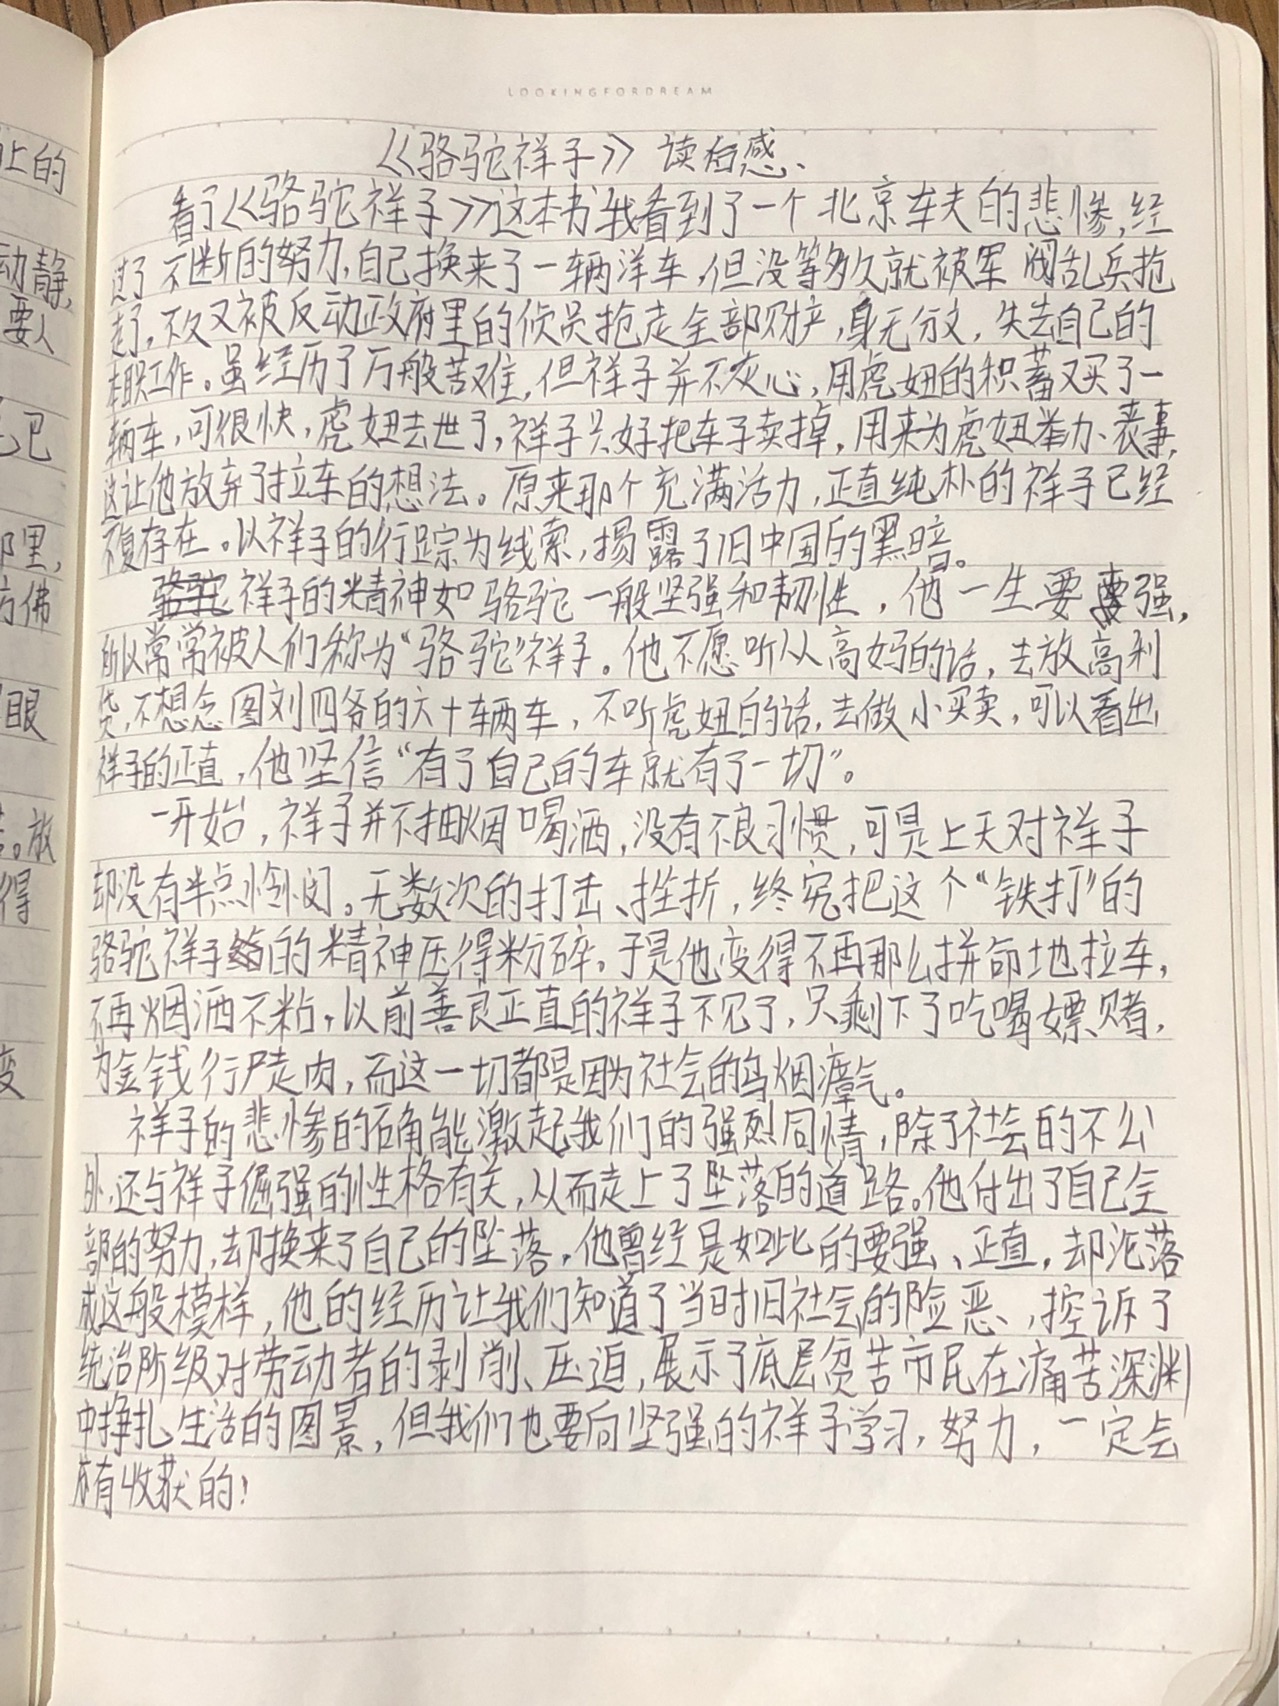 LOOKINGFORDREAM
《骆驼祥子》读后感、
看了《骆驼祥子》这本书我看到了一个北京车夫的悲惨,经
过了不断的努力,自己换来了一辆洋车,但没等多久就被军阀乱兵抢
走了,不久又被反动政府里的侦员抢走全部财产,身无分文,失去自己的
本职工作。虽经历了万般苦难,但祥子并不灰心,用虎妞的积蓄又买了一
辆车,可很快,虎妞去世了,祥子只好把车子卖掉,用来为虎妞举办丧事,
这让他放弃了拉车的想法。原来那个充满活力,正直纯朴的祥子已经
不复存在。以祥子的行踪为线索,揭露了旧中国的黑暗。
祥子的精神如骆驼一般坚强和韧性,他一生要强,
所以常常被人们称为“骆驼”祥子。他不愿听从高妈的话,去放高利
贷,不想念图刘四爷的六十辆车,不听虎妞的话,去做小买卖,可以看出
祥子的正直,他坚信“有了自己的车就有了一切”。
一开始,祥子并不抽烟喝酒,没有不良习惯,可是上天对祥子
却没有半点怜闵。无数次的打击、挫折,终究把这个“铁打”的
骆驼祥子的精神压得粉碎,于是他变得不再那么拼命地拉车,
不再烟酒不粘,以前善良正直的祥子不见了,只剩下了吃喝嫖赌,
为金钱行尸走肉,而这一切都是因为社会的乌烟瘴气。
祥子的悲惨的确能激起我们的强烈同情,除了社会的不公
外,还与祥子倔强的性格有关,从而走上了坠落的道路。他付出了自己全
部的努力,却换来了自己的坠落,他曾经是如此的要强、正直,却沦落
成这般模样,他的经历让我们知道了当时旧社会的险恶、,控诉了
统治阶级对劳动者的剥削、压迫,展示了底层贫苦市民在痛苦深渊
中挣扎生活的图景,但我们也要向坚强的祥子学习,努力,一定会
有收获的!
上的
动静,
要人
已
那里,
仿佛
眼
。放
得
变